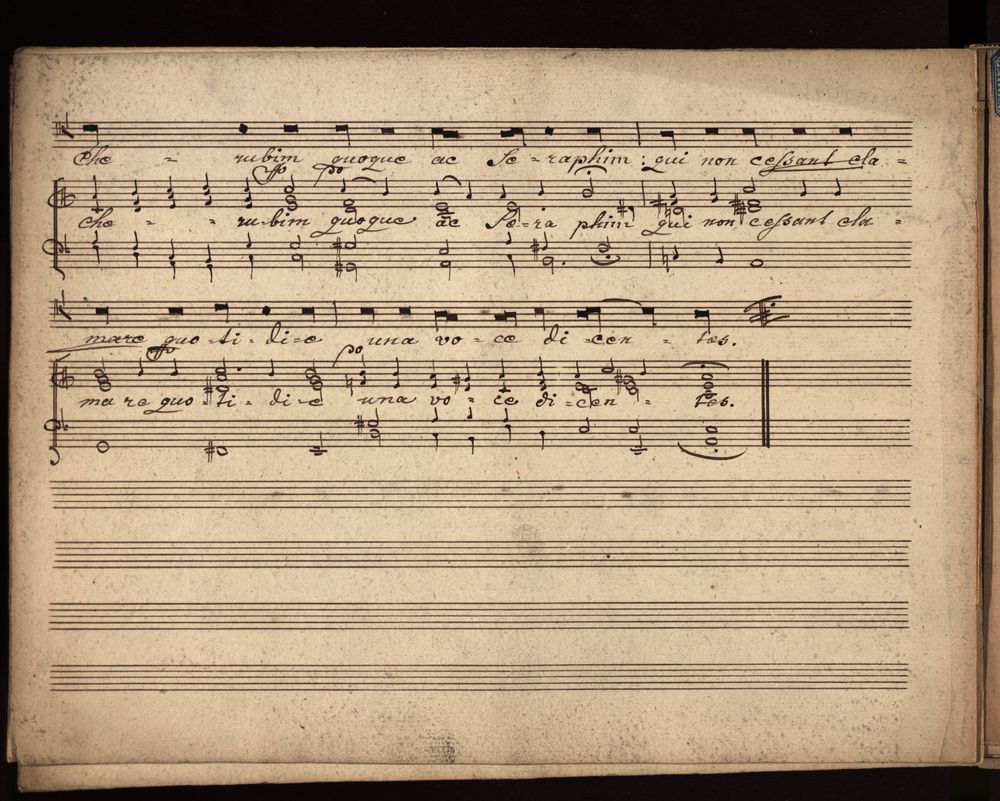 Che - rubim quoque ac Se - raphim : qui non cessant cla =
fo po
Che - - ru - bim quoque ac Se - ra phim qui non cessant cla -
mare quo - ti - di - e una vo - ce di - cen - tes.
fo po
ma re quo - ti - di - e una vo - ce di - cen - tes.